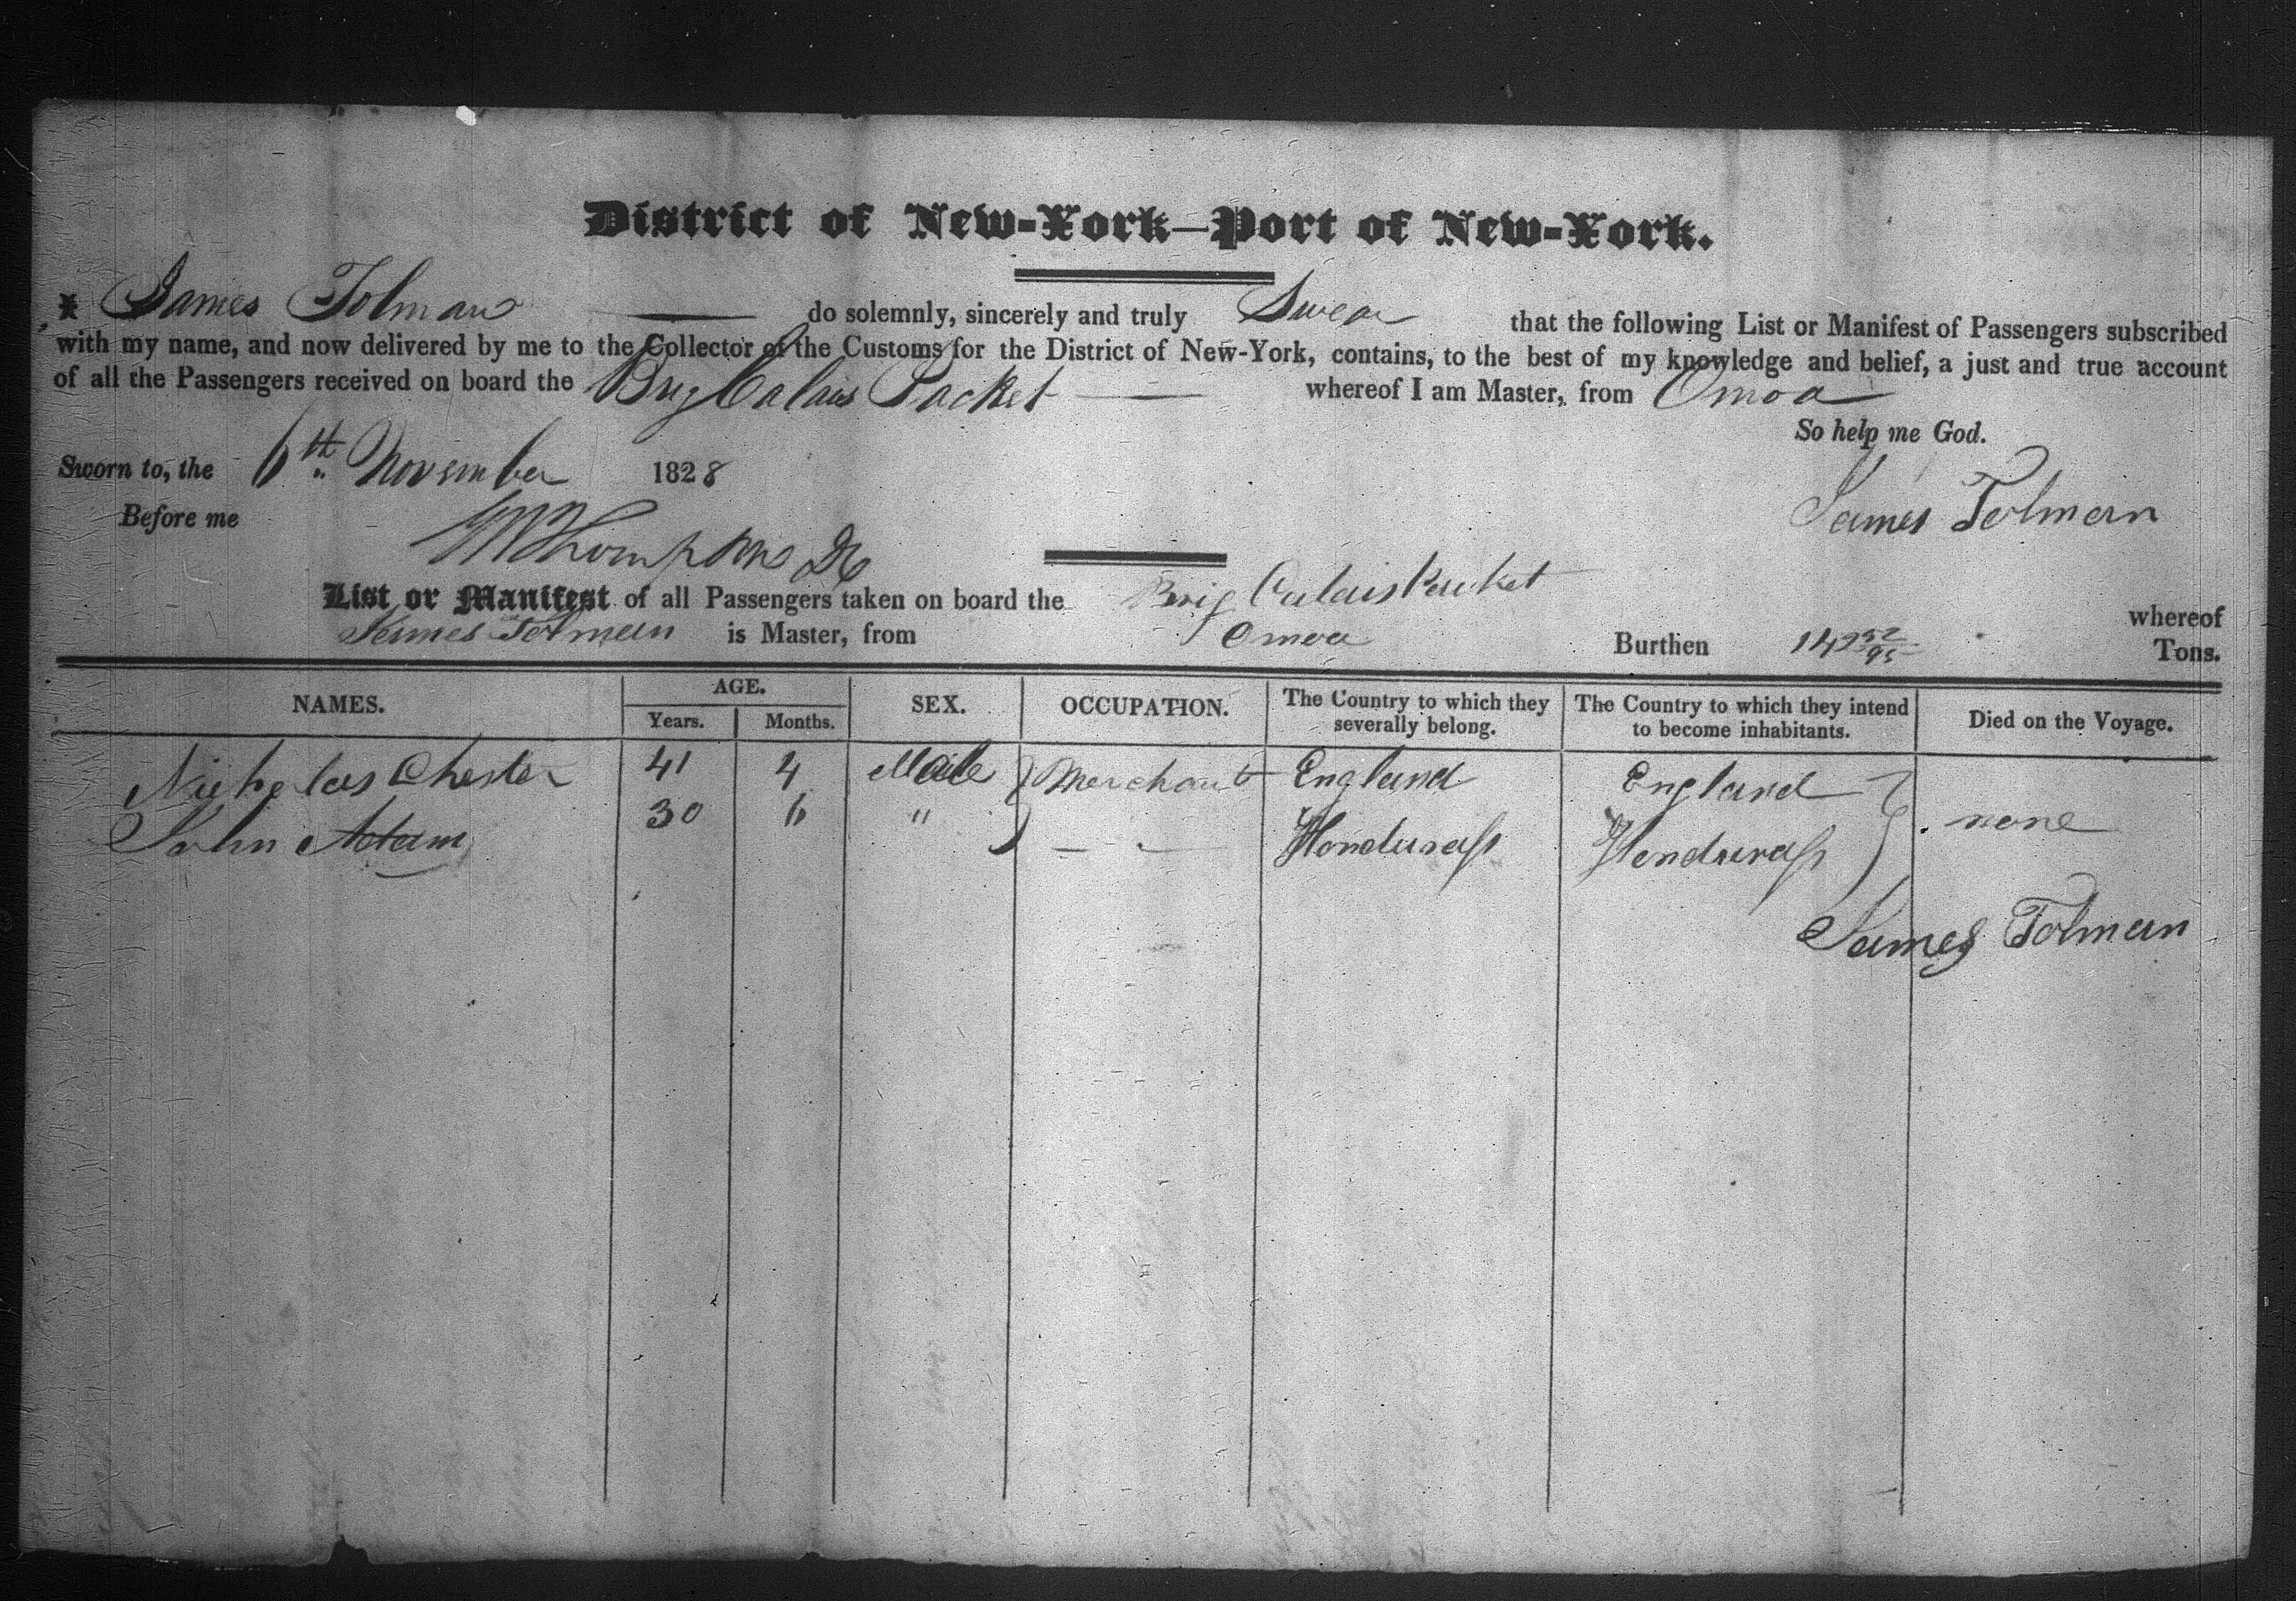 District of New-York—Port of New-York.
I James Tolman do solemnly, sincerely and truly Swear that the following List or Manifest of Passengers subscribed
with my name, and now delivered by me to the Collector of the Customs for the District of New-York, contains, to the best of my knowledge and belief, a just and true account
of all the Passengers received on board the Brig Calais Packet whereof I am Master, from Omoa
So help me God.
Sworn to, the 6th November 1828
James Tolman
Before me
Thompson
List or Manifest of all Passengers taken on board the Brig Calais Packet whereof
James Tolman is Master, from Omoa Burthen 142 52/95 Tons.
NAMES. AGE. Years. Months. SEX. OCCUPATION. The Country to which they severally belong. The Country to which they intend to become inhabitants. Died on the Voyage.
Nicholas Chester 41 4 Male Merchant England England
John Adam 30 6 " Hondurass Hondurass none
James Tolman